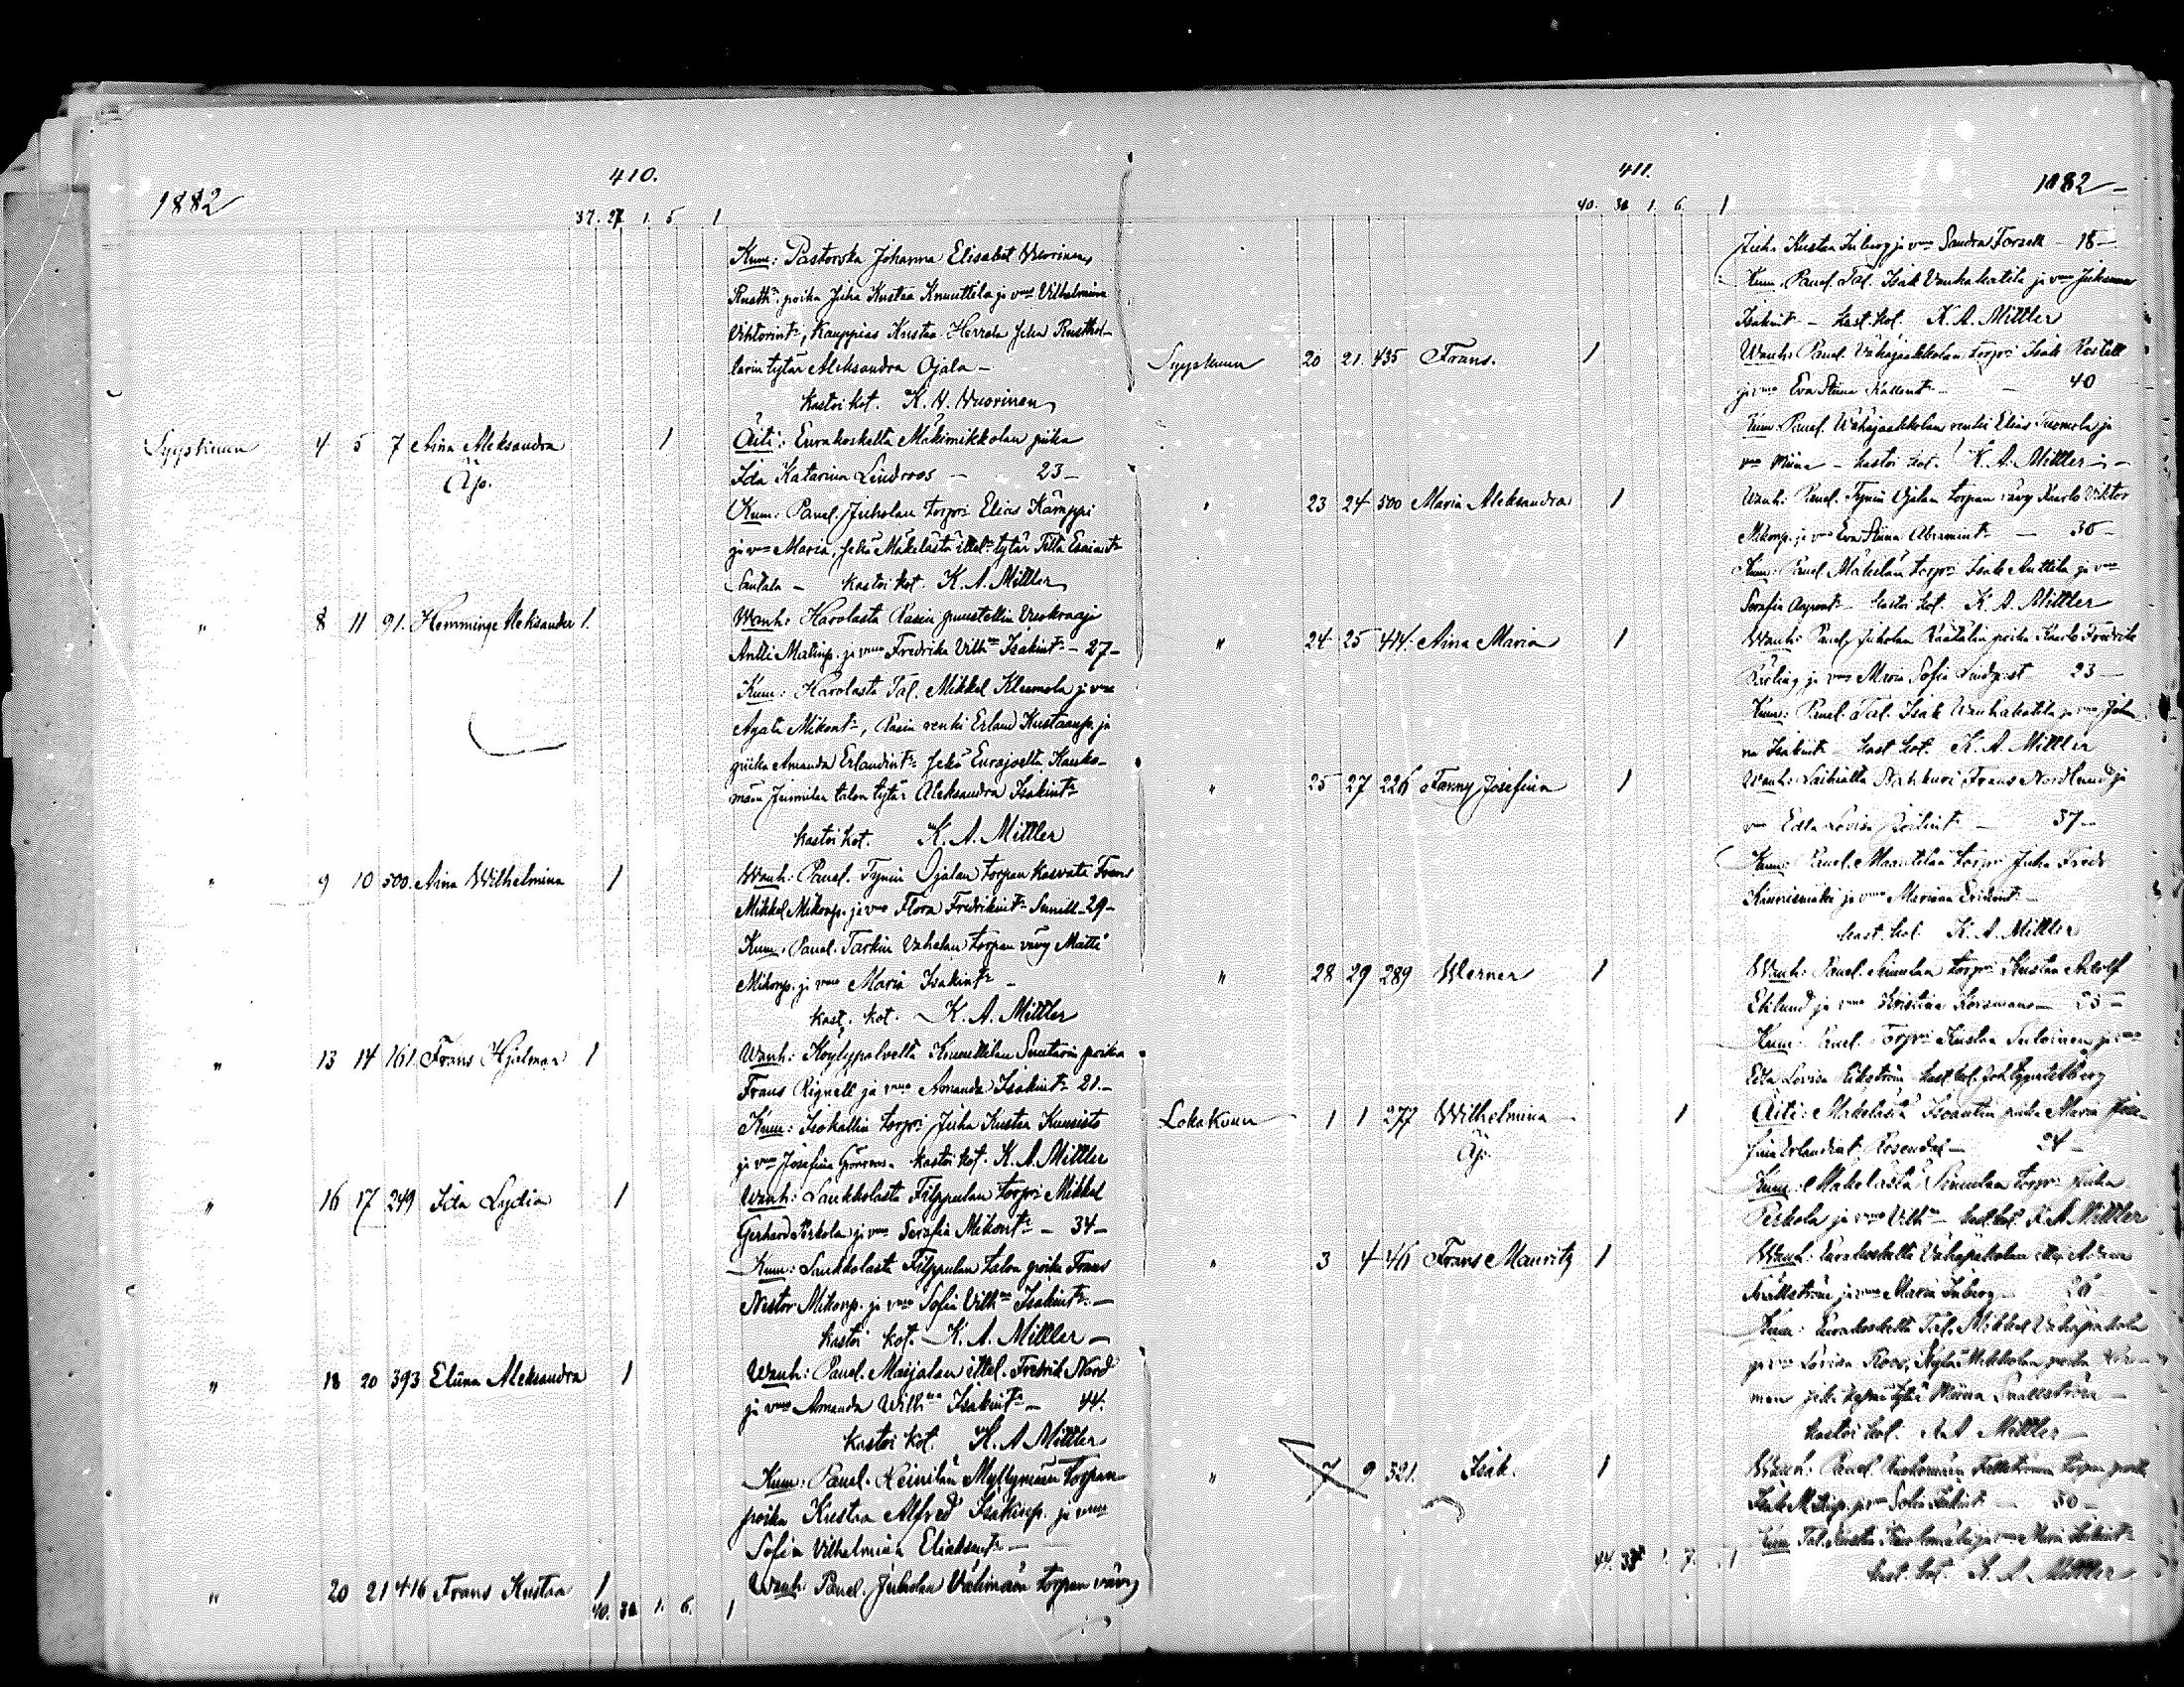 410.
1882
37. 27 1. 5 1
Kum: Pastorska Johanna Elisabet Wuorinen,
Rusth. poika Juha Kustaa Knuuttila ja vmo Vilhelmina
Vihtorint:, Kauppias Kustaa Herrala sekä Rusthol-
larin tytär Aleksandra Ojala -
kastoi kot. K. H. Wuorinen
Syyskuun 4 5 7 Aina Aleksandra 1 Äiti: Eurakoskelta Mäkimikkolan piika
Äp. Ida Katarina Lindroos - 23 -
Kum: Panel. Juholan torpri Elias Kämppi
ja vmo Maria, sekä Mäkelästä ittel. tytär Tilta Esaiant:
Santala - kastoi kot. K. A. Mittler
" 8 11 91. Hemminge Aleksander 1. Wanh: Harolasta Rasin puustellin
Antti Matinp. ja vmo Fredrika Vilh:na Isakint: - 27 -
Kum: Harolasta Tal. Mikkel Kleemola ja vmo
Agata Mikont:, Rasin renki Erland Kustaanp. ja
piika Amanda Erlandint: sekä Eurajoelta Kauko-
män Junnilan talon tytär Aleksandra Isakint:
kastoi kot. K. A. Mittler
" 9 10 500. Aina Wilhelmina 1 Wanh: Panel. Tynin Ojalan torpan kasvatti Frans
Mikkel Mikonp. ja vmo Flora Fredrikint: Sunell - 29 -
Kum: Panel. Tarkin Vahalan torpan vävy Matti
Mikonp. ja vmo Maria Isakint: -
kast. kot. K. A. Mittler
" 13 14 161. Frans Hjalmar 1 Wanh: Köyliypolvelta Knuuttilan Suutarin poika
Frans Rignell ja vmo Amanda Isakint: 21. -
Kum: Isokallin torpri Juha Kustaa Kuusisto
ja vmo Josefina Grönroos. kastoi kot. K. A. Mittler
" 16 17 249 Ida Lydia 1 Wanh: Laukkolasta Filppulan torpri Mikkel
Gerhard Perkola ja vmo Serafia Mikont: - 34 -
Kum: Laukkolasta Filppulan talon poika Frans
Nestor Mikonp. ja vmo Sofia Vilh:na Isakint: -
kastoi kot. K. A. Mittler -
" 18 20 393 Eliina Aleksandra 1 Wanh: Panel. Maijalan ittel. Fredrik Nord
ja vmo Amanda Wilh:na Isakint: - 44.
kastoi kot. K. A. Mittler
Kum: Panel. Heinilän Myllymään torpan
poika Kustaa Alfred Isakinp. ja vmo
Sofia Vilhelmina Eliaksent: -
" 20 21 416 Frans Kustaa 1 Wanh: Panel. Juholan Välimään torpan vävy
40. 30. 1. 6. 1
411.
1882
40. 30 1. 6. 1
Juha Kustaa Inberg ja vmo Sandra Forsell - 18 -
Kum: Panel. Tal. Isak Vanhakatila ja vmo Juhanna
Isakint: - kast. kot. K. A. Mittler
Syyskuun 20 21. 435 Frans. 1 Wanh: Panel. Vähäjaakkolan torpri Isak Rostell
ja vmo Eva Stiina Kallent: - 40
Kum: Panel. Wähäjaakkolan renki Elias Tuomola ja
vmo Miina - kastoi kot. K. A. Mittler -
" 23 24 500 Maria Aleksandra 1 Wanh: Panel. Tynin Ojalan torpan vävy Kaarlo Viktor
Mikonp. ja vmo Eva Stiina Abramint: - 30 -
Kum: Panel. Mäkelän torpri Isak Anttila ja vmo
Serafia kastoi kot. K. A. Mittler
" 24 25 414. Aina Maria 1 Wanh: Panel. Juholan Räätälin poika Kaarlo Fredrik
ja vmo Maria Sofia Lindqvist 23 -
Kum: Panel. Tal. Isak Wanhakatila ja vmo Johan
na Isakint: kast. kot. K. A. Mittler
" 25 27 226 Fanny Josefina 1 Wanh: Laihialta Nahkuri Frans Nordlund ja
vmo Edla Lovisa - 37 -
Kum: Panel. Maantilan torpri Juha Fredr
ja vmo Mariana
kast. kot. K. A. Mittler
" 28 29 289 Werner 1 Wanh: Panel. Simulan torpri Kustaa Adolf
Eklund ja vmo Kristina - 33 -
Kum: Panel. Torpri Kustaa Suloinen ja vmo
Edla Lovisa Ekström kast. kot.
Lokakuun 1 1 277 Wilhelmina 1 Äiti: Mäkelästä Isoantin piika Maria Jose-
Äp. fina Erlandint. Rosendal - 24 -
Kum: Mäkelästä Simulan torpri Juha
Perkola ja vmo Vilh:na kast. kot. K. A. Mittler
" 3 4 46 Frans Mauritz 1 Wanh: Eurakoskelta Vähäpäkolan
Snällström ja vmo Maria Inberg - 26 -
Kum: Eurakoskelta Tal. Mikkel Vähäpäkola
ja vmo Lovisa Roos, poika
man sekä tytär Miina Snällström -
kastoi kot. K. A. Mittler -
" 7 9 321. Isak. 1 Wanh: Panel. torpan poika
Isak ja vmo Sofia Isakint - 30 -
Kum: Tal. Kustaa ja vmo Maria Isakint:
44. 33 1. 7. 1 kast. kot. K. A. Mittler